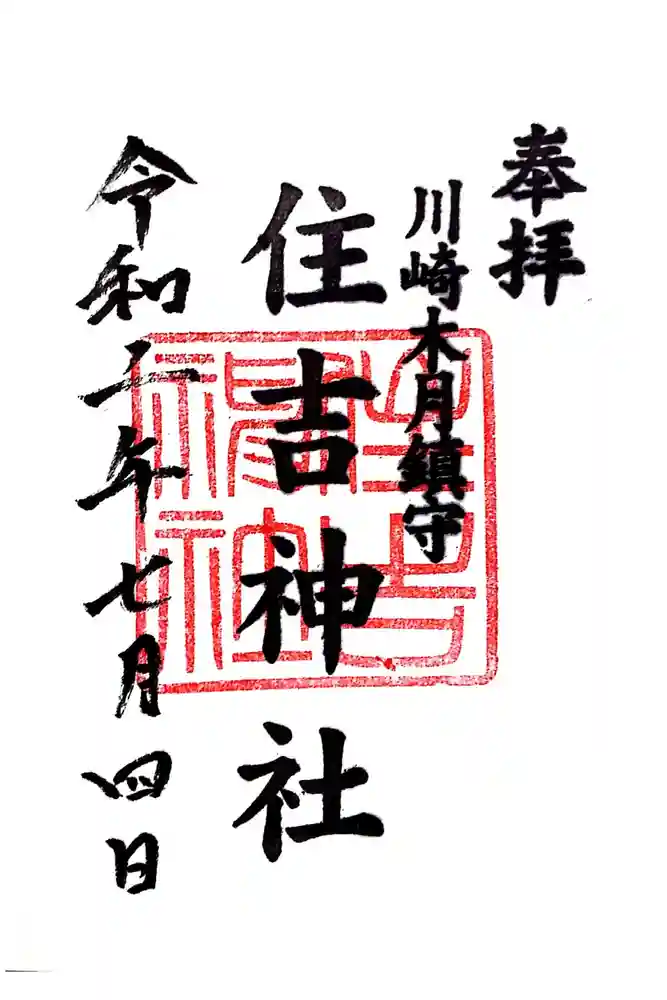 奉拝
川崎木月鎮守
住吉神社
令和二年七月四日
住吉
神社